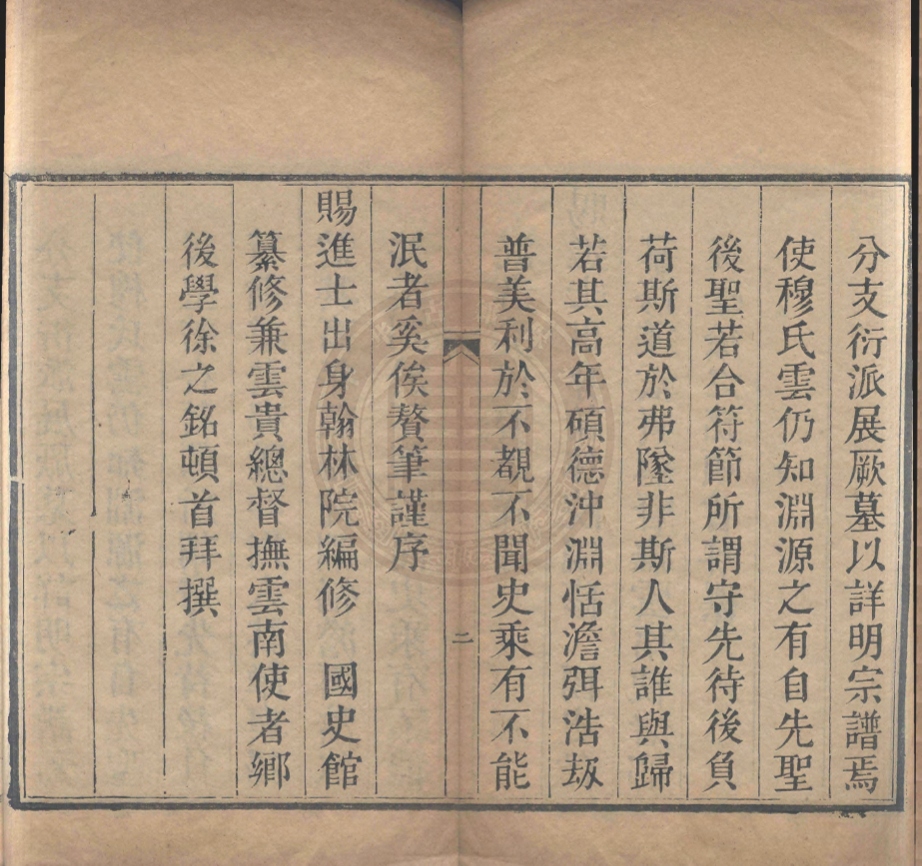 分支衍派展厥墓以詳明宗譜焉
使穆氏雲仍知淵源之有自先聖
後聖若合符節所謂守先待後負
荷斯道於弗墜非斯人其誰與歸
若其高年碩德沖淵恬澹弭浩劫
普美利於不覩不聞史乘有不能
二
泯者奚俟贅筆謹序
賜進士出身翰林院編修 國史館
纂修兼雲貴總督撫雲南使者鄉
後學徐之銘頓首拜撰